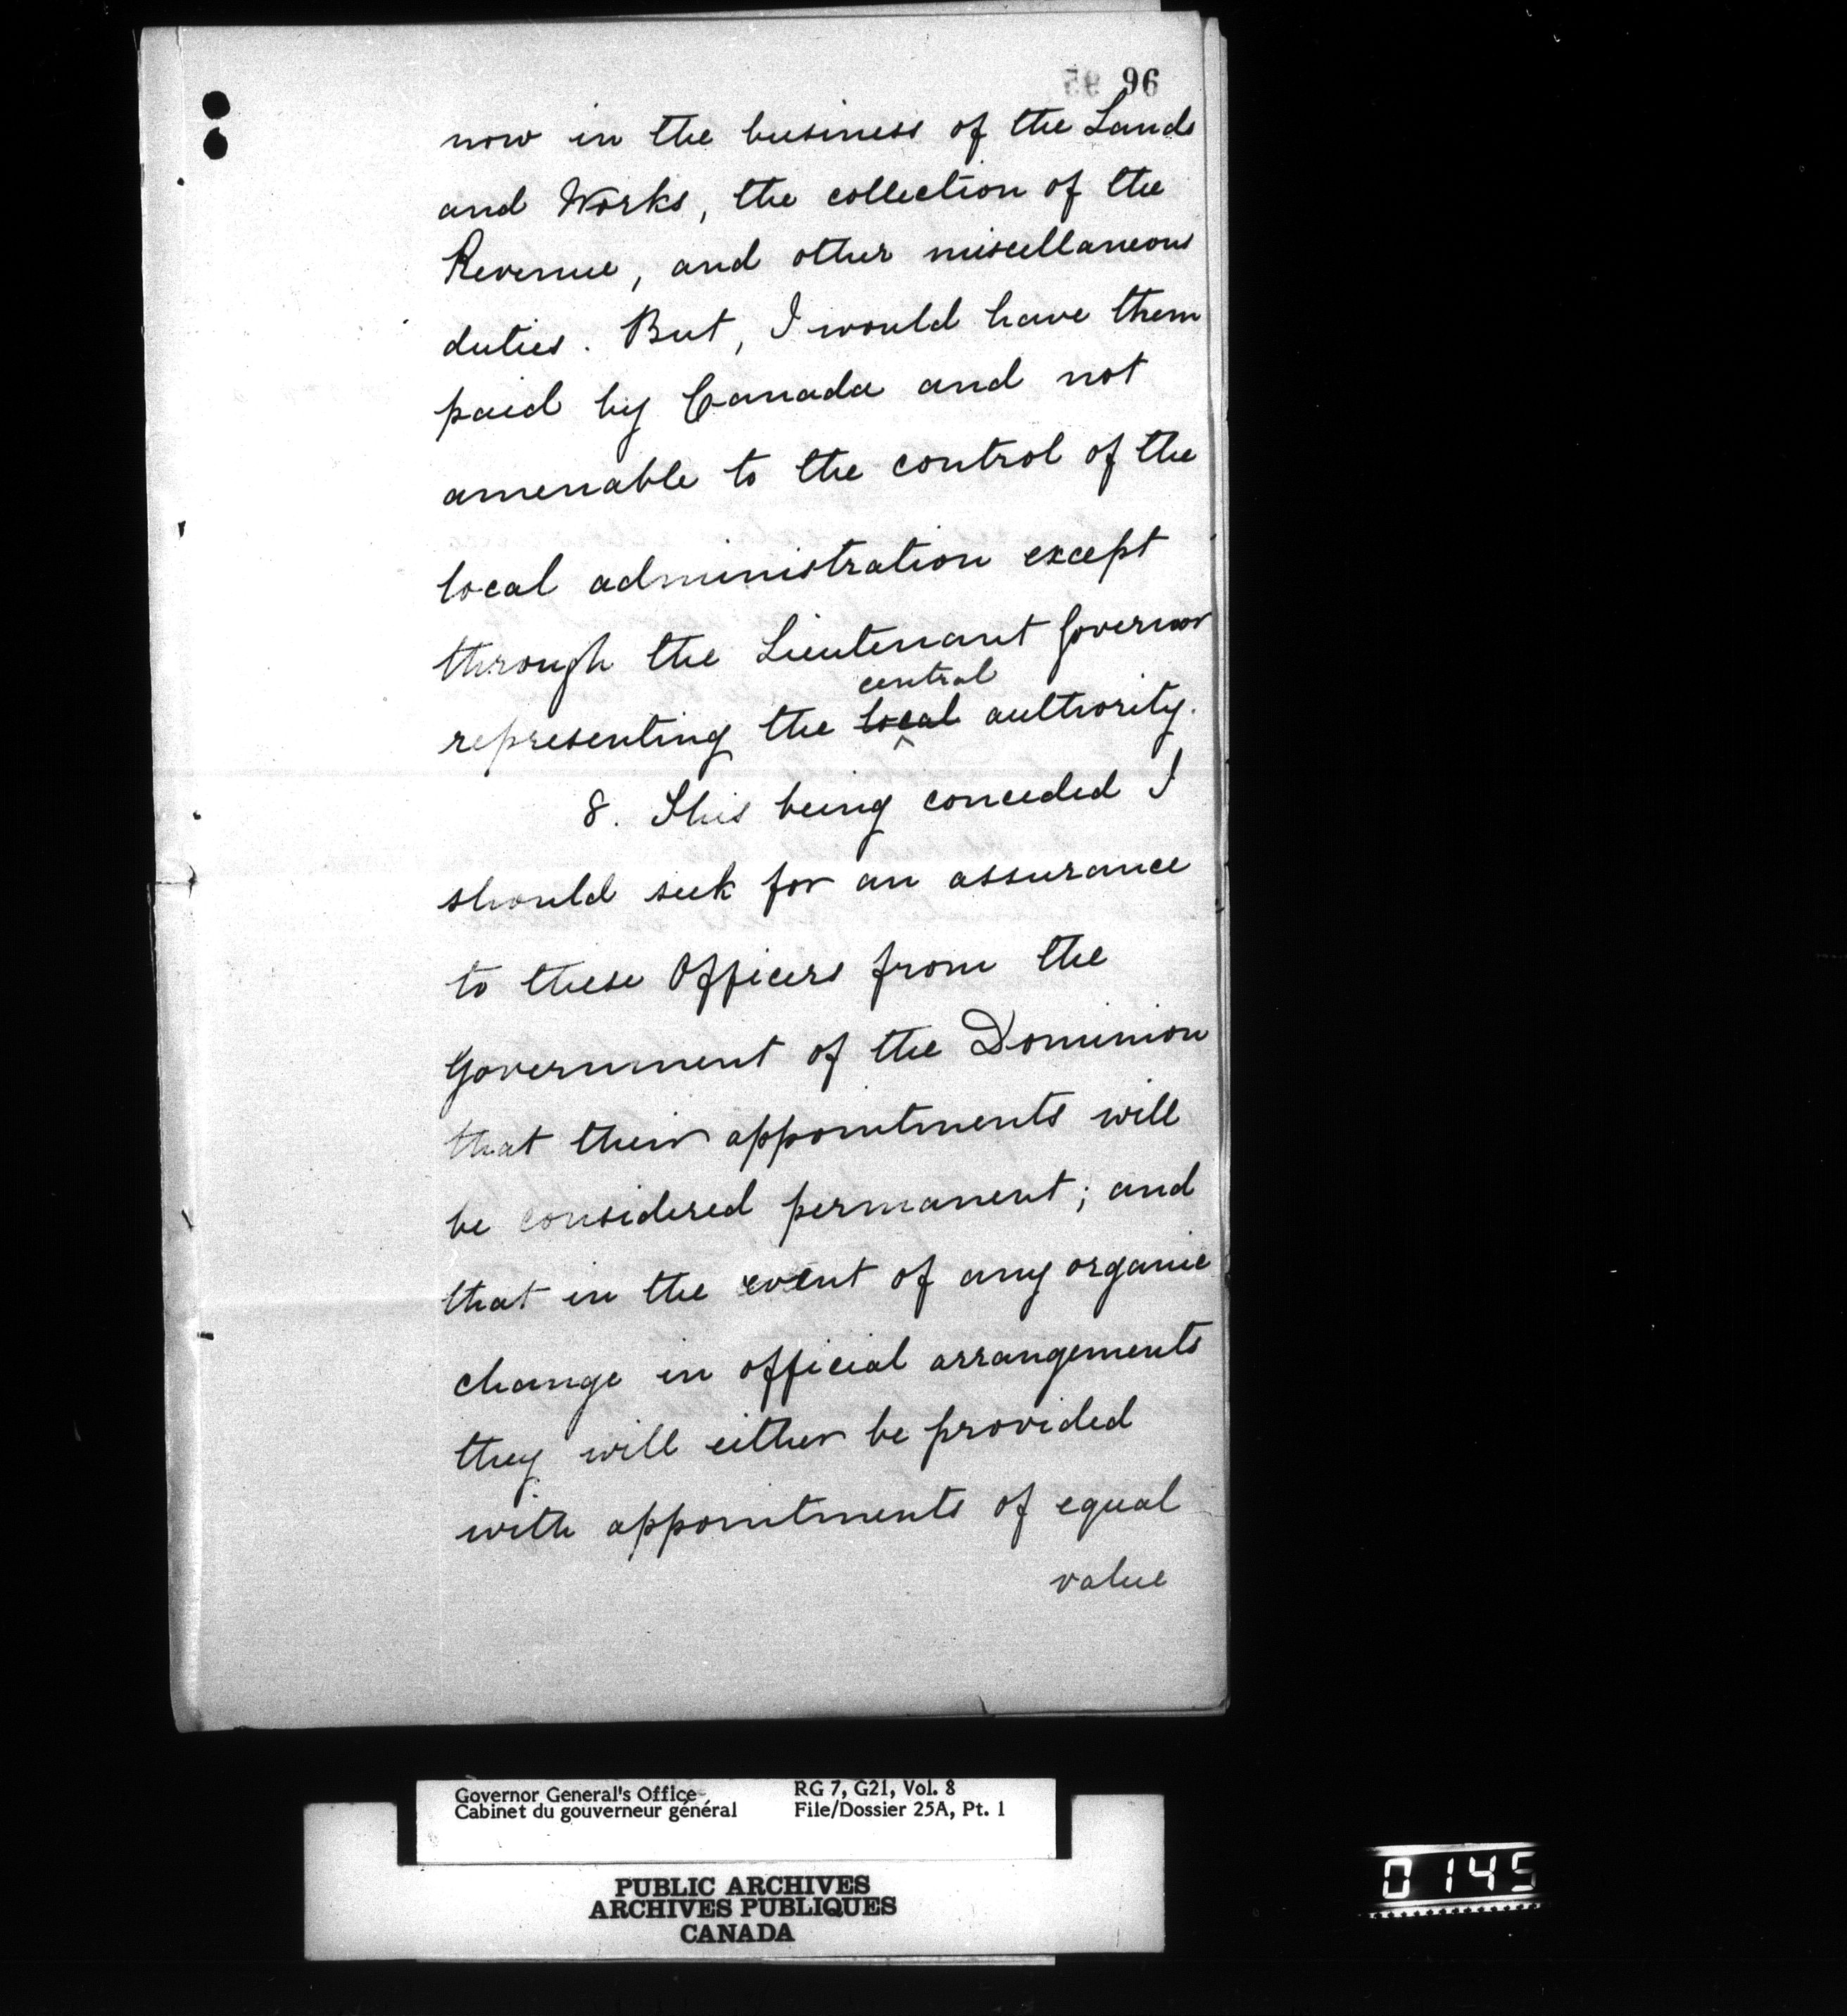 96
now in the business of the Lands
and Works, the collection of the
Revenue, and other miscellaneous
duties. But, I would have them
paid by Canada and not
amenable to the control of the
local administration except
through the Lieutenant Governor
central
representing the local authority.
8. This being conceded I
should seek for an assurance
to these Officers from the
Government of the Dominion
that their appointments will
be considered permanent; and
that in the event of any organic
change in official arrangements
they will either be provided
with appointments of equal
value
Governor General's Office RG 7, G21, Vol. 8
Cabinet du gouverneur général File/Dossier 25A, Pt. 1
PUBLIC ARCHIVES
ARCHIVES PUBLIQUES
CANADA
0145